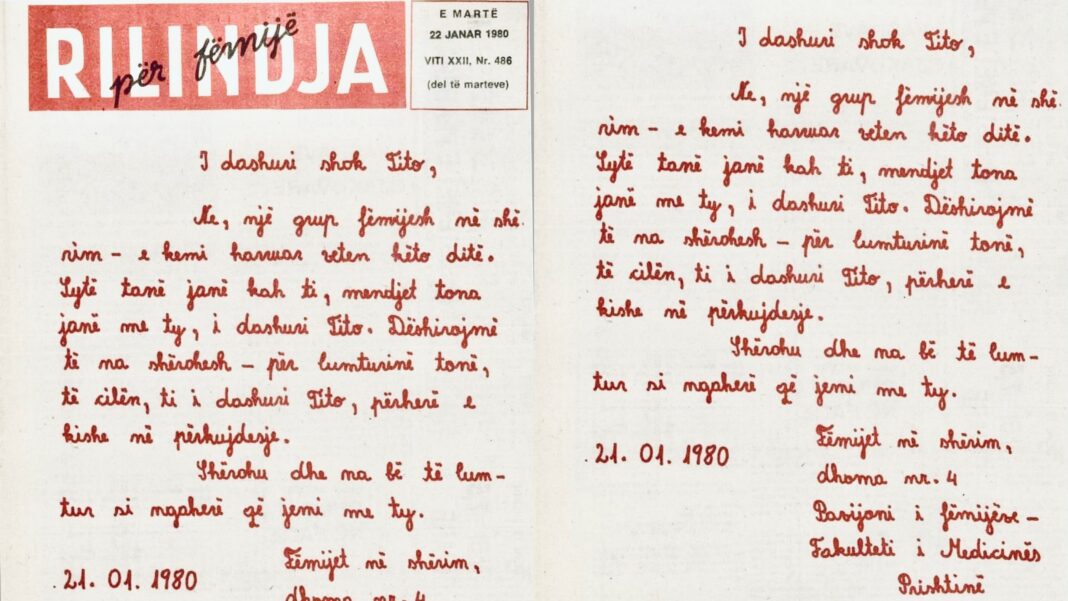 RILINDJA
për fëmijë
E MARTË
22 JANAR 1980
VITI XXII, Nr. 486
(del të marteve)
I dashuri shok Tito,
Ne, një grup fëmijësh në shë-
rim - e kemi harruar veten këto ditë.
Sytë tanë janë kah ti, mendjet tona
janë me ty, i dashuri Tito. Dëshirojmë
të na shërohesh - për lumturinë tonë,
të cilën, ti i dashuri Tito, përherë e
kishe në përkujdesje.
Shërohu dhe na bë të lum-
tur si ngaherë që jemi me ty.
Fëmijet në shërim,
21. 01. 1980
dhoma nr. 4
I dashuri shok Tito,
Ne, një grup fëmijesh në shë-
rim - e kemi harruar veten këto ditë.
Sytë tanë janë kah ti, mendjet tona
janë me ty, i dashuri Tito. Dëshirojmë
të na shërohesh - për lumturinë tonë,
të cilën, ti i dashuri Tito, përherë e
kishe në përkujdesje.
Shërohu dhe na bë të lum-
tur si ngaherë që jemi me ty.
Fëmijet në shërim,
21. 01. 1980
dhoma nr. 4
Pavijoni i fëmijëve -
Fakulteti i Medicinës
Prishtinë